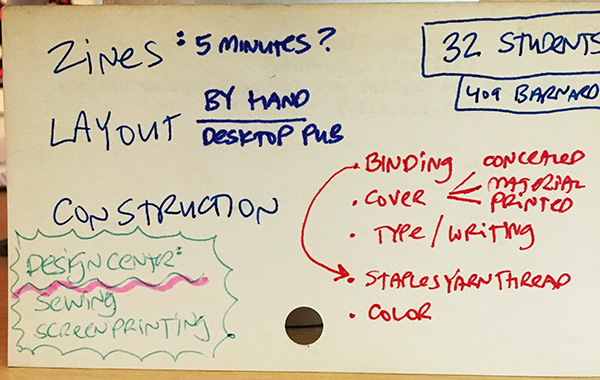 ZINES: 5 MINUTES?
32 STUDENTS
409 BARNARD
LAYOUT BY HAND
DESKTOP PUB
CONSTRUCTION
• BINDING
• COVER CONCEALED
MATERIAL
PRINTED
• TYPE/WRITING
• STAPLES YARN THREAD
• COLOR
DESIGN CENTER:
SEWING
SCREENPRINTING